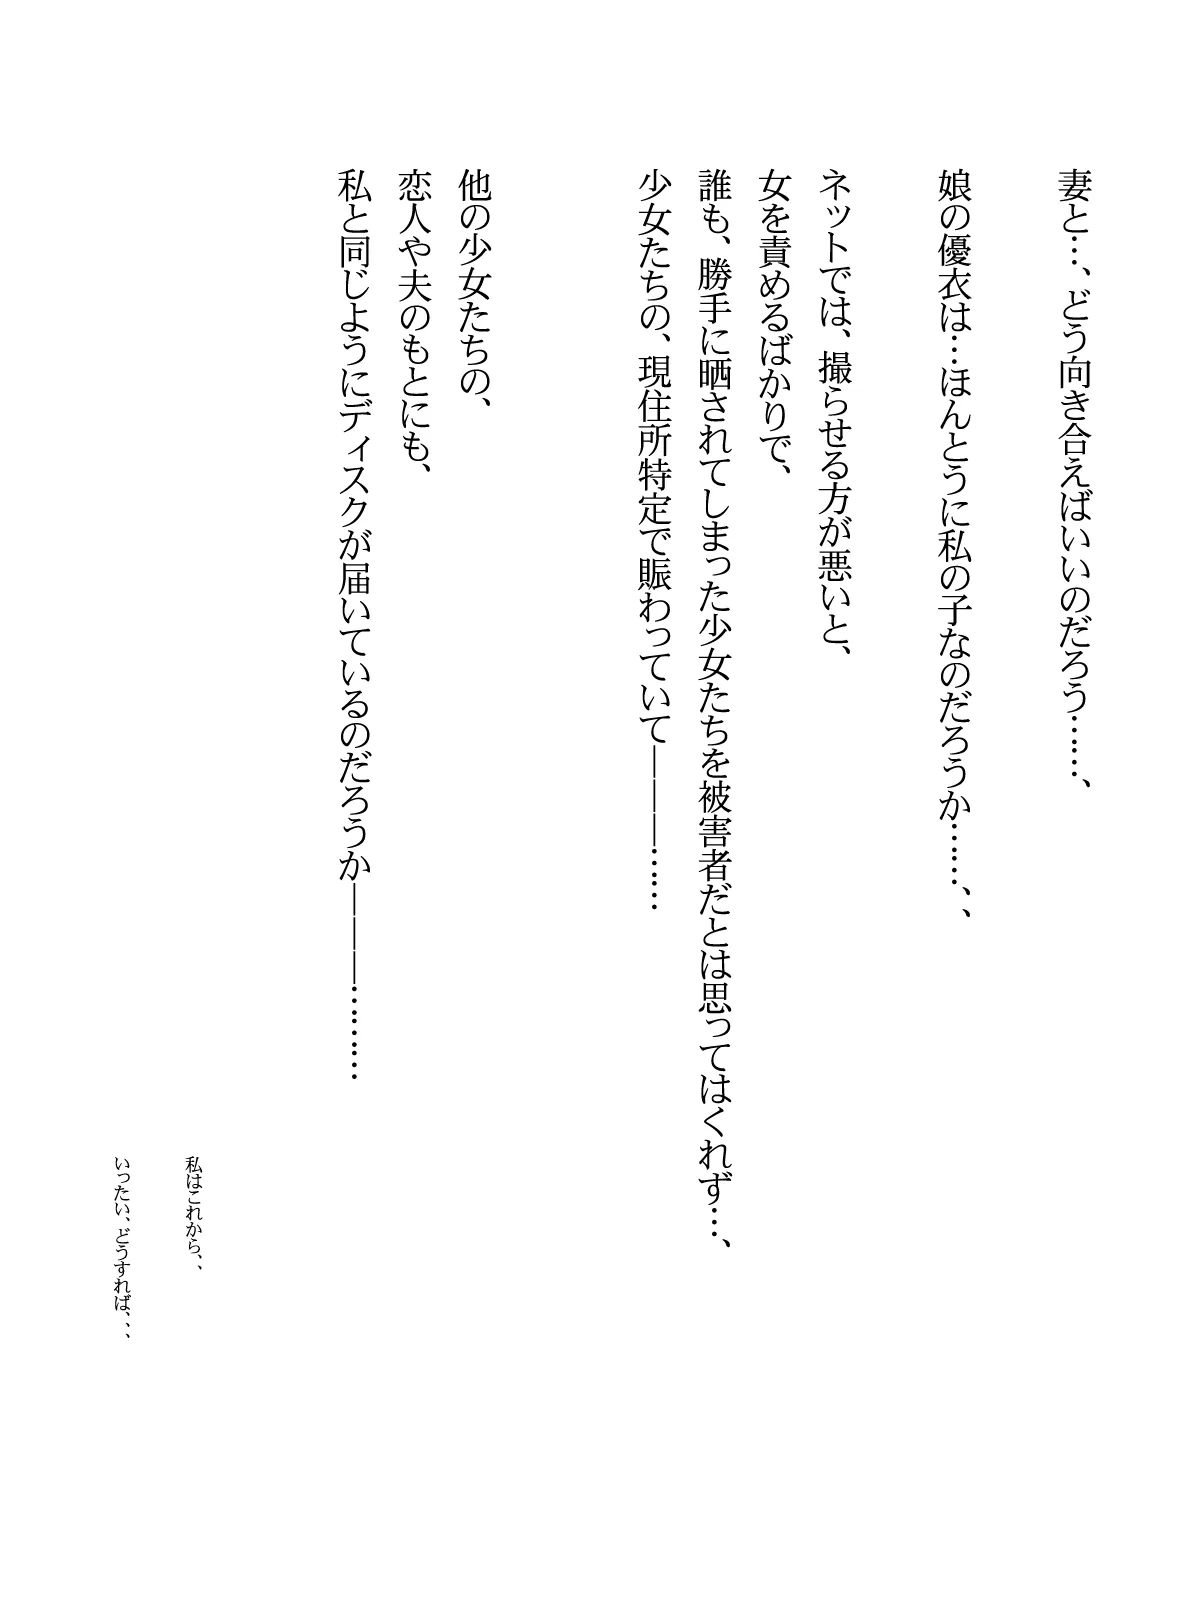 妻と…、どう向き合えばいいのだろう……、
娘の優衣は…ほんとうに私の子なのだろうか……、、
ネットでは、撮らせる方が悪いと、
女を責めるばかりで、
誰も、勝手に晒されてしまった少女たちを被害者だとは思ってはくれず…、
少女たちの、現住所特定で賑わっていて―――……
他の少女たちの、
恋人や夫のもとにも、
私と同じようにディスクが届いているのだろうか―――………
私はこれから、、
いったい、どうすれば、、、